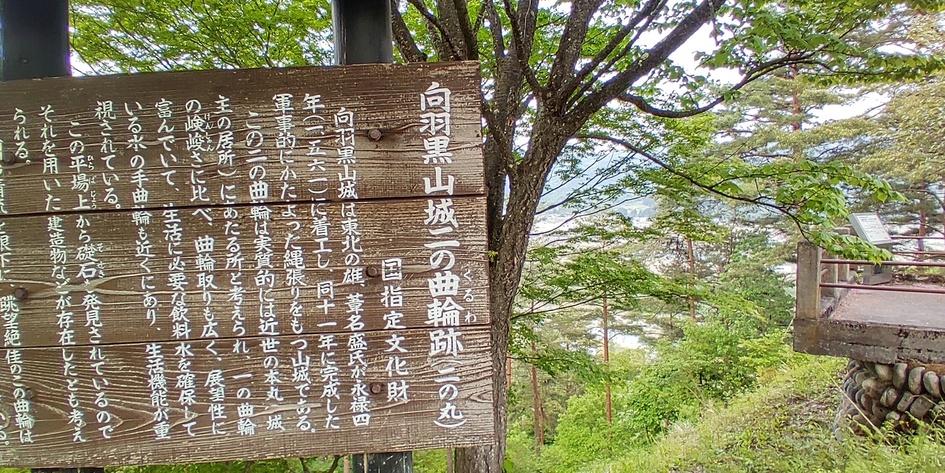 向羽黒山城二の曲輪跡(二の丸)
くるわ
国指定文化財
向羽黒山城は東北の雄、葦名盛氏が永禄四
年(一、五六一)に着工し、同十一年に完成した
軍事的にかたよった縄張りをもつ山城である。
この二の曲輪は実質的には近世の本丸(城
主の居所)にあたる所と考えられ、一の曲輪
の嶮峻さに比べ、曲輪取りも広く、展望性に
けんしゅん
富んでいて、生活に必要な飲料水を確保して
いる水の手曲輪も近くにあり、生活機能が重
視されている。
この平場上から礎石が発見されているので
ひらばじょう
そせき
それを用いた建造物などが存在したとも考え
られる。
眼下に、眺望絶佳のこの曲輪は